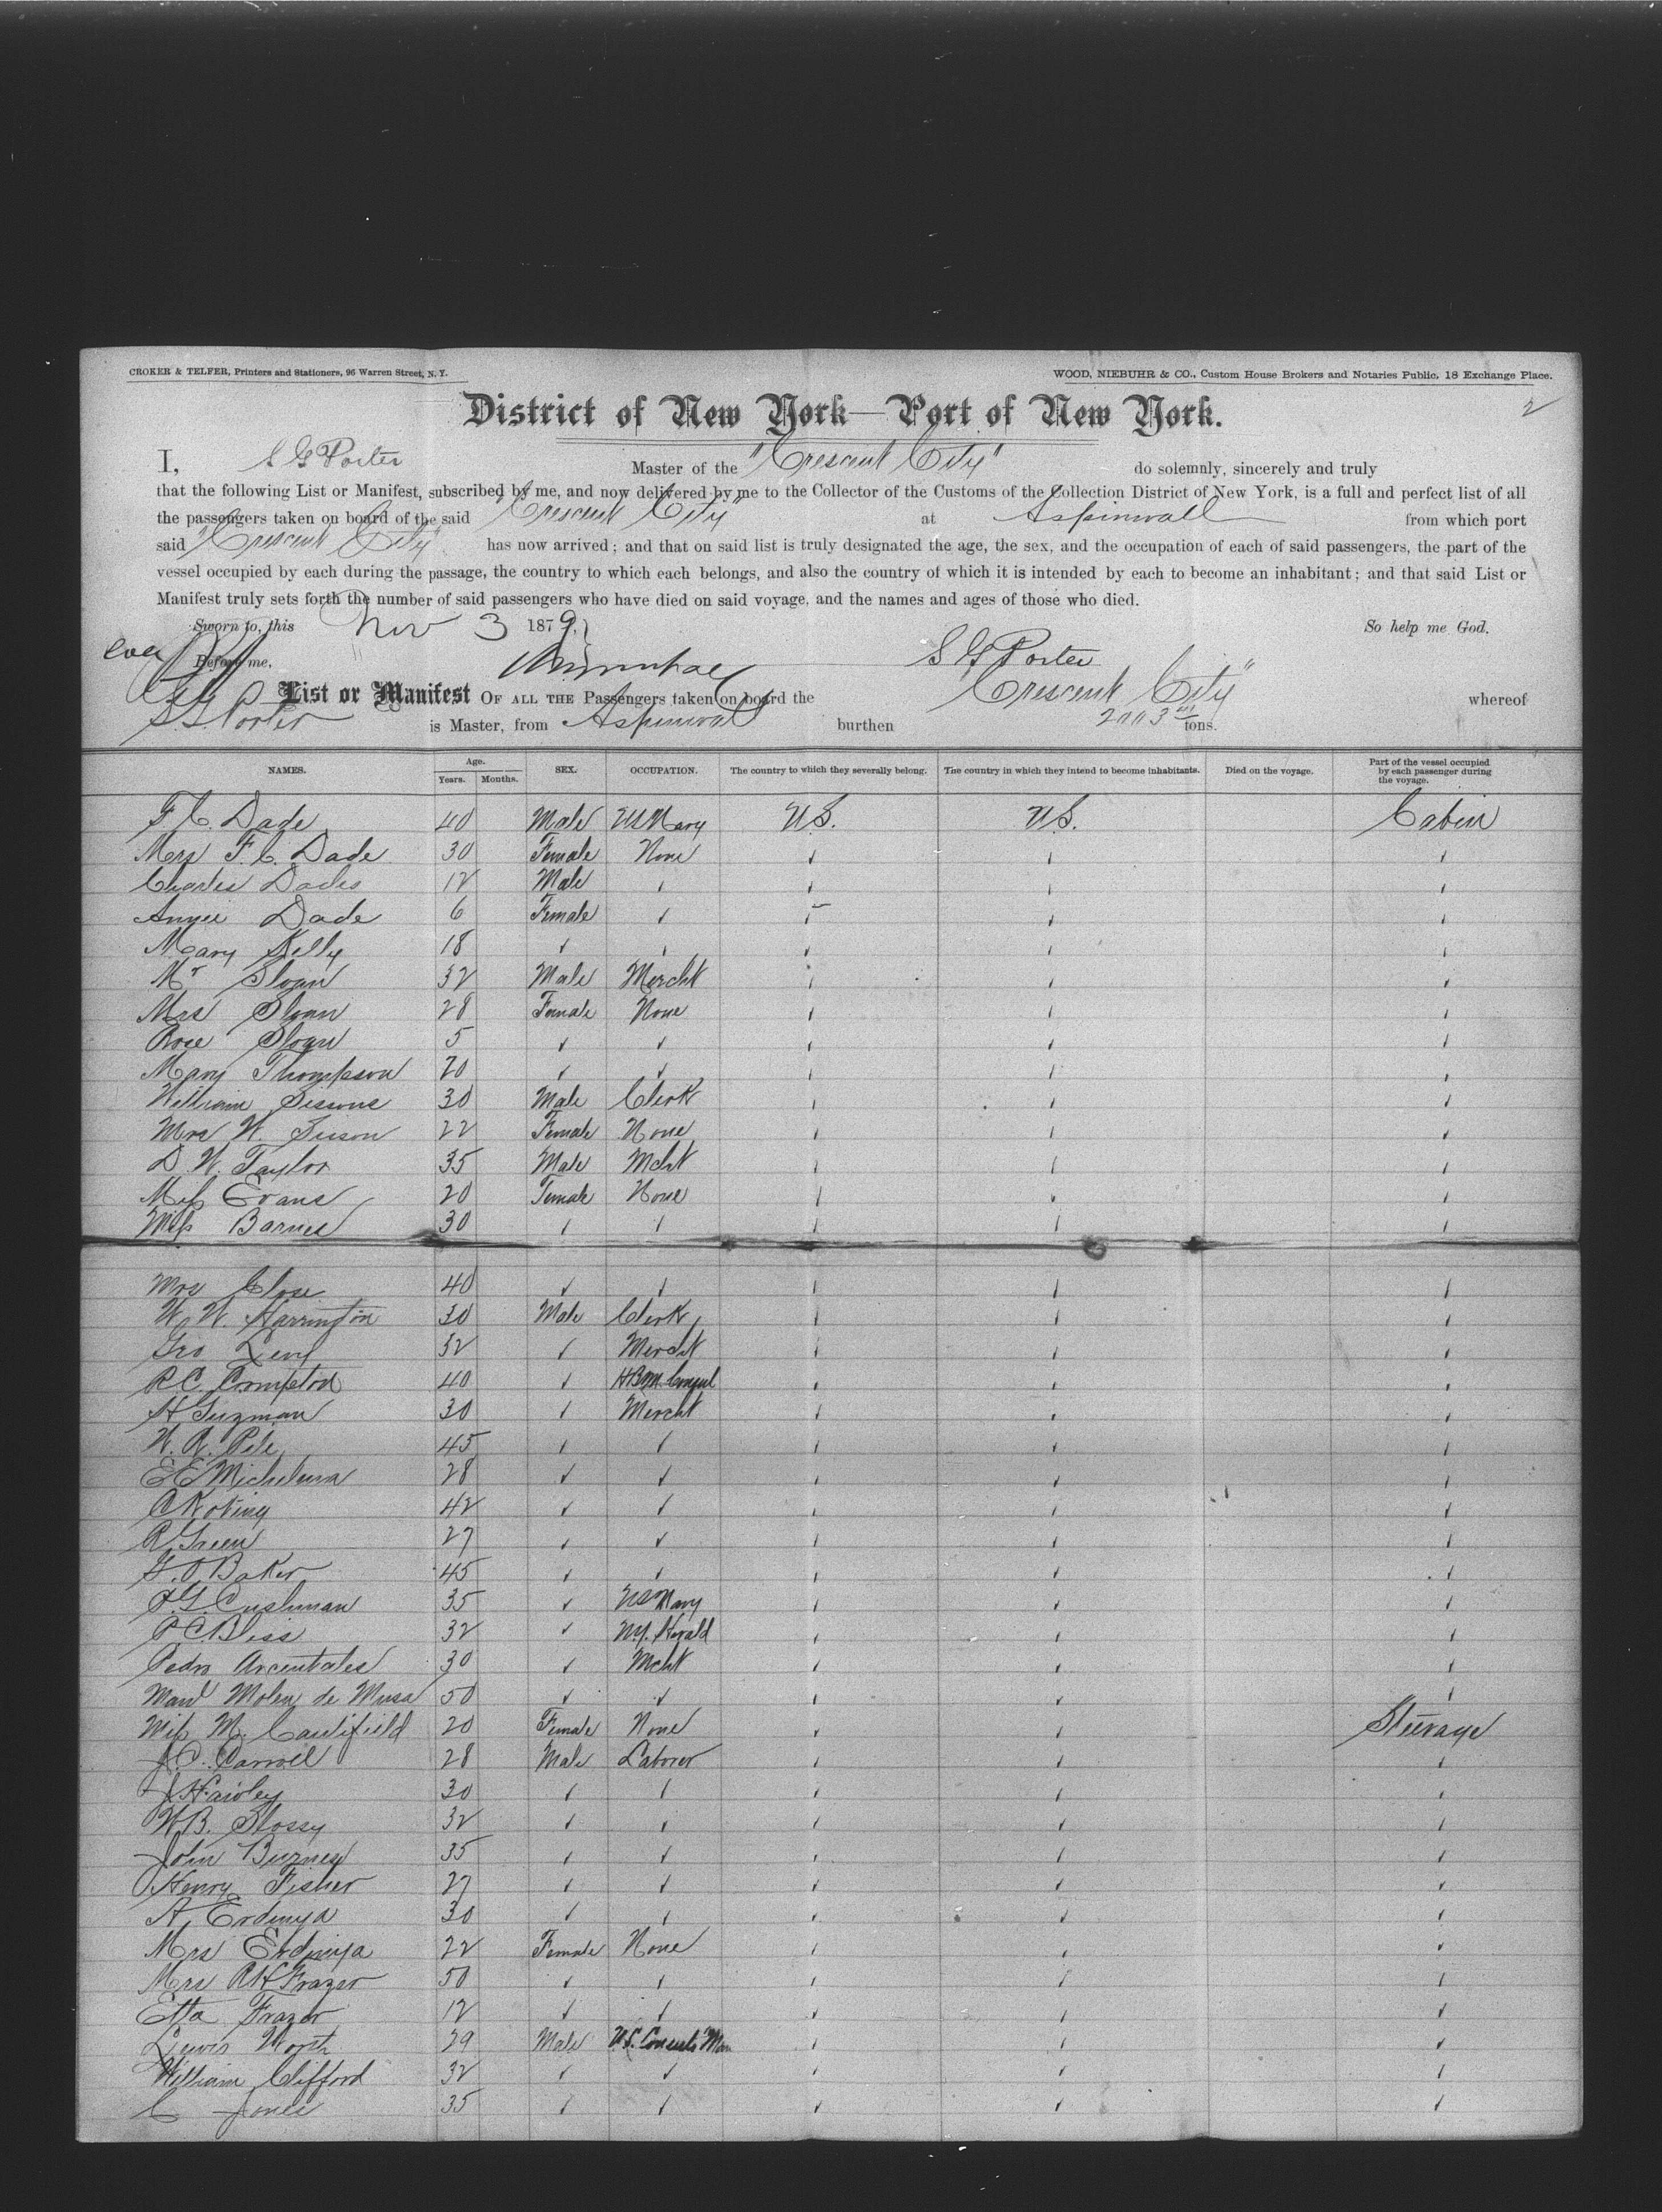 CROKER & TELFER, Printers and Stationers, 96 Warren Street, N. Y. WOOD, NIEBUHR & CO., Custom House Brokers and Notaries Public, 18 Exchange Place.
2
District of New York—Port of New York.
I, S G Porter Master of the "Crescent City" do solemnly, sincerely and truly
that the following List or Manifest, subscribed by me, and now delivered by me to the Collector of the Customs of the Collection District of New York, is a full and perfect list of all
the passengers taken on board of the said Crescent City" at Aspinwall from which port
said "Crescent City" has now arrived; and that on said list is truly designated the age, the sex, and the occupation of each of said passengers, the part of the
vessel occupied by each during the passage, the country to which each belongs, and also the country of which it is intended by each to become an inhabitant; and that said List or
Manifest truly sets forth the number of said passengers who have died on said voyage, and the names and ages of those who died.
Sworn to, this Nov 3 1879, So help me God.
Before me, S G Porter
List or Manifest OF ALL THE Passengers taken on board the "Crescent City" whereof
S. G. Porter is Master, from Aspinwall burthen 2003 tons.
NAMES. Age. Years. Months. SEX. OCCUPATION. The country to which they severally belong. The country in which they intend to become inhabitants. Died on the voyage. Part of the vessel occupied by each passenger during the voyage.
F. C. Dade 40 Male US Navy U.S. U.S. Cabin
Mrs F. C. Dade 30 Female None
Charles Dade 12 Male
Annie Dade 6 Female
Mary Kelly 18
Mr Sloan 32 Male Mercht
Mrs Sloan 28 Female None
Rose Sloan 5
Mary Thompson 20
William Sissons 30 Male Clerk
Mrs W. 22 Female None
D. W. Taylor 35 Male Mcht
Miss Evans 20 Female None
Miss Barnes 30
Mrs Close 40
W. W. Harrington 30 Male Clerk
Geo Levy 32 Mercht
R C. Crompton 40 H B M. Consul
H Guzman 30 Mercht
W. R. Pele 45
E E 28
42
R Green 27
G. O Baker 45
F G Cushman 35 US Navy
P C. Bliss 32 N.Y. Herald
Pedro Arcentales 30 Mcht
Manl de Musa 50
Miss M. Caulifield 20 Female None Steerage
J. C. Carroll 28 Male Laborer
J Hawley 30
W B. Slossy 32
John 35
Henry Fisher 27
A. Erdmya 30
Mrs Erdmya 22 Female None
Mrs R H Frazer 50
Etta Frazer 12
Lewis North 29 Male U.S. Consuls Man
William Clifford 32
C Jones 35